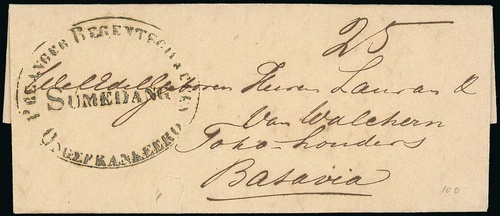 25
PREANGER REGENTSCHAPPEN
WelEdelgeboren Heeren Lauran &
SUMEDANG
Van Walchern
ONGEFRANKEERD
Toko-houders
Batavia
100